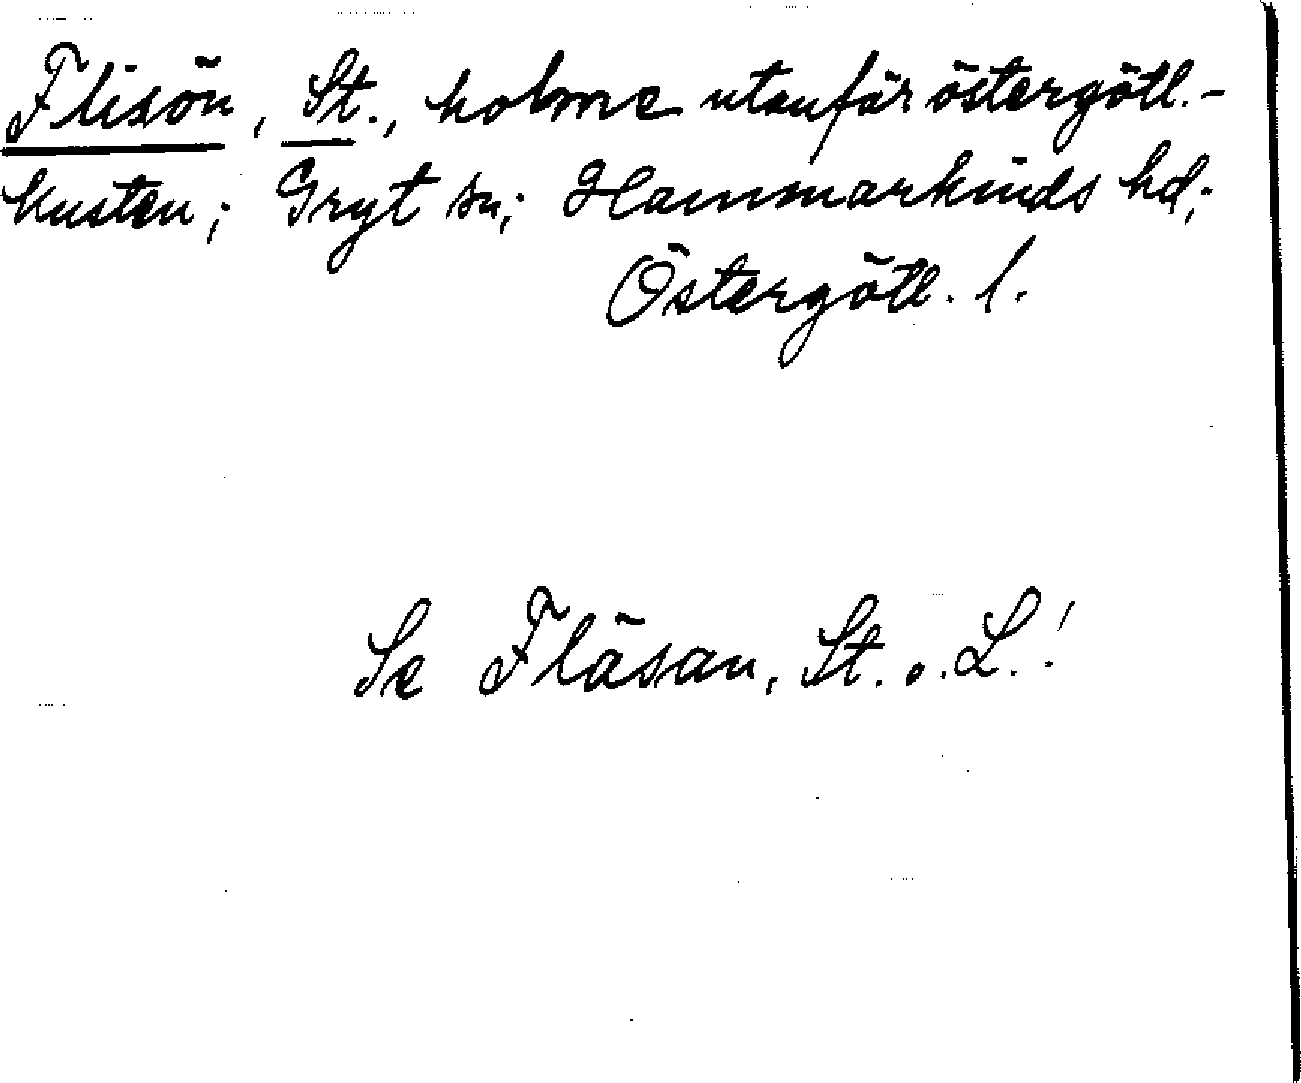 Flisön, St., holme utanför östergötl.-
kusten; Gryt sn; Hammarkinds hd;
Östergötl. l.
Se Fläsan, St. o. L.!